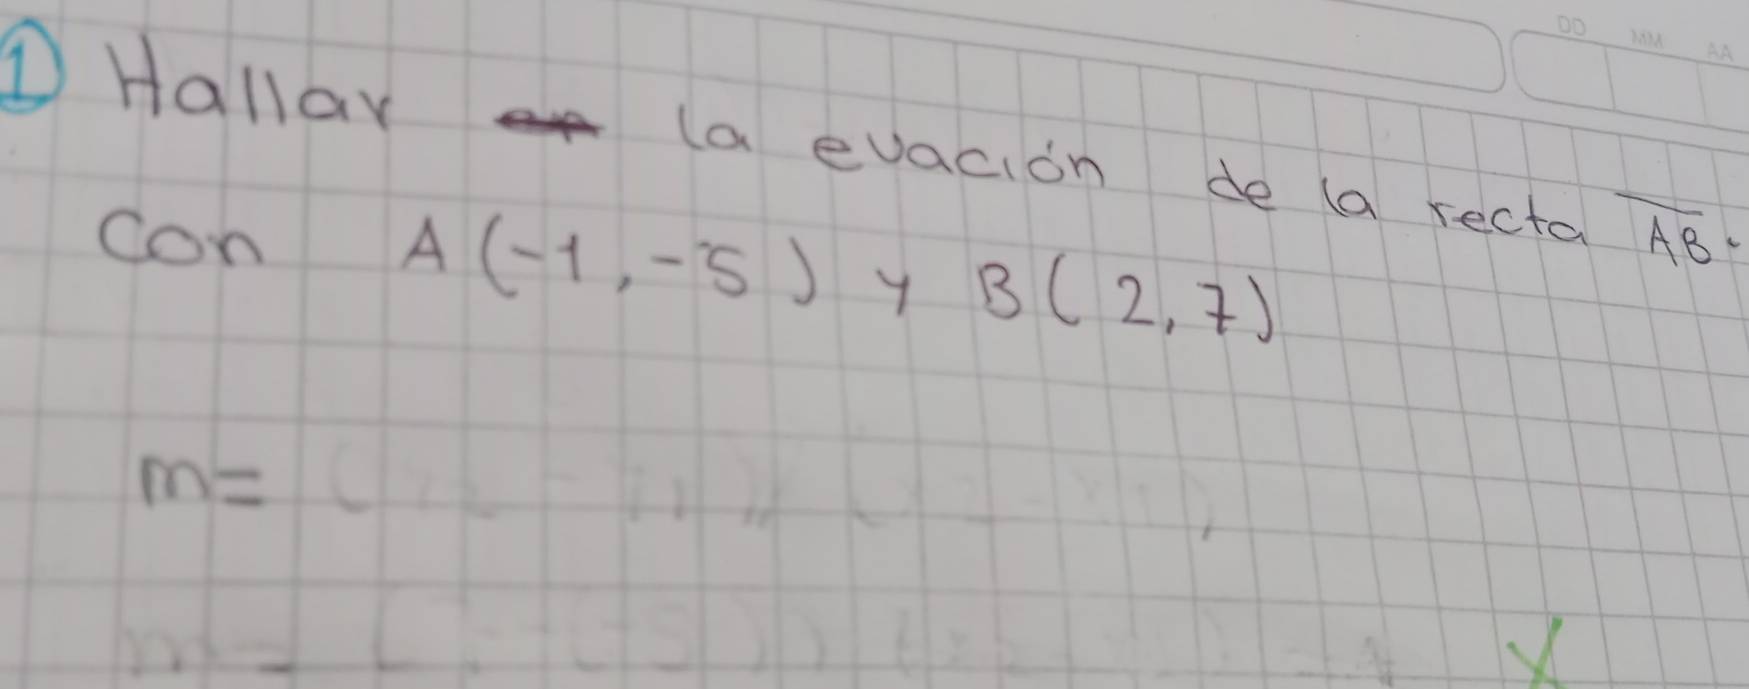 DD MM AA
1 Hallar la evación de la recta AB.
con A(-1,-5) y B(2,7)
m=
m=